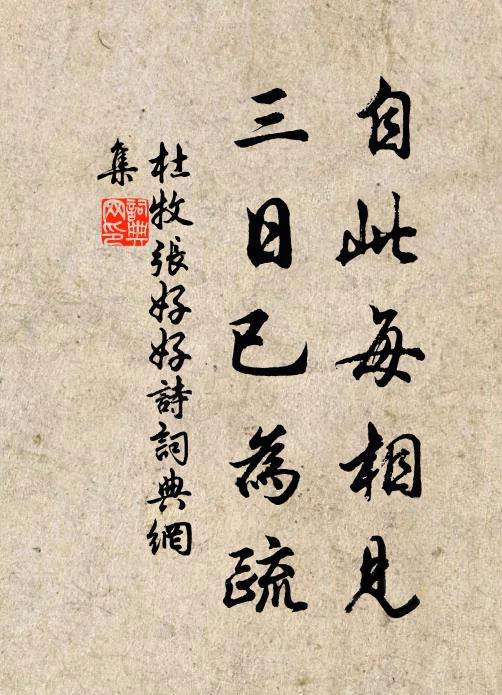 自此每相見
三日已為疏
杜牧張好好詩詞典網
集
詞典網印